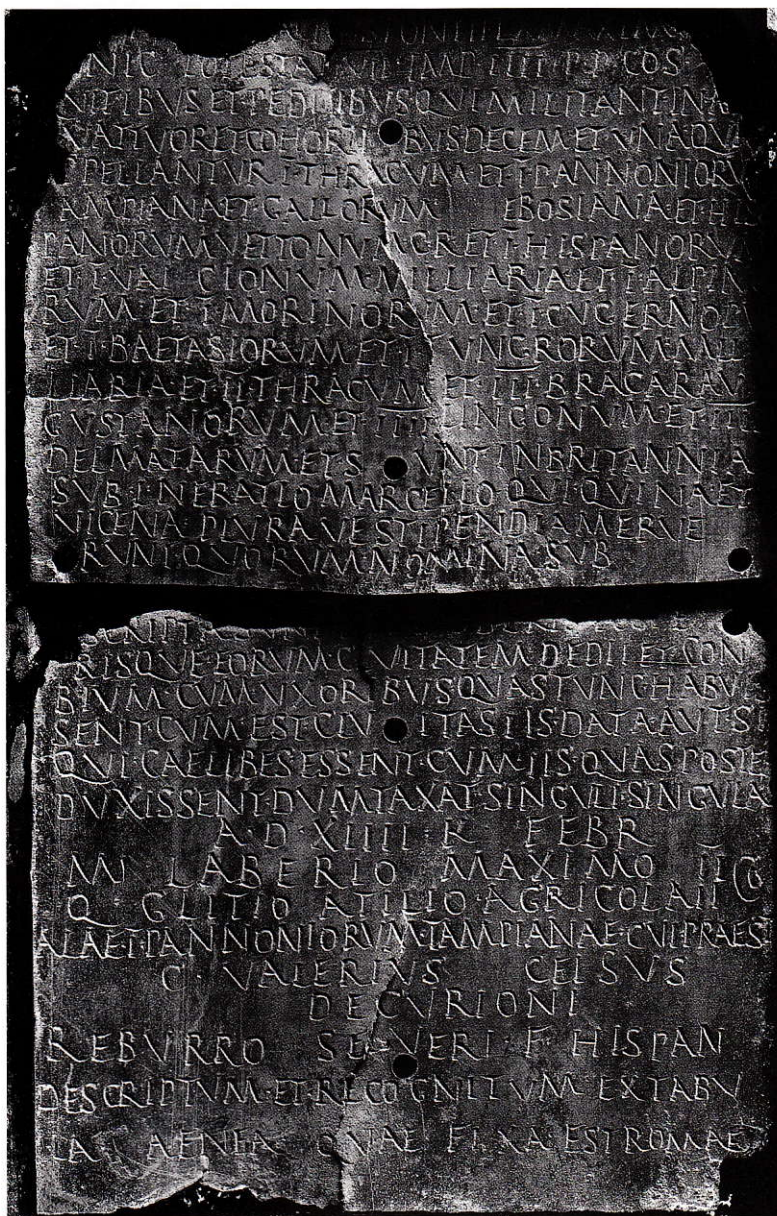 NIC POTESTAT VII IMP IIII P P COS
VITIBVS ET PEDITIBVS QVI MILITANT IN
VATTVOR ET COHORTIBVS DECEM ET VNA QVA
PELLANTVR I THRACVM ET I PANNONIORV
AMPIANA ET GALLORVM EBOSIANA ET HIS
PANORVM VETTONVM C R ET I HISPANORVM
ET I VAL CIONVM MILLIARIA ET I ALPIN
RVM ET I MORINORVM ET I CVGERNOR
ET I BAETASIORVM ET I TVNGRORVM MIL
LIARIA ET II THRACVM ET III BRACARAV
GVSTANIORVM ET IIII LINGONVM ET IIII
DELMATARVM ET SVNT IN BRITANNIA
SVB I NERATIO MARCELLO QVI QVINA ET
VICENA PLVRAVE STIPENDIA MERVE
RVNT QVORVM NOMINA SVB
RISQVE EORVM CIVITATEM DEDIT ET CONV
BIVM CVM VXORIBVS QVAS TVNC HABVIS
SENT CVM EST CIVITAS IIS DATA AVT S
QVI CAELIBES ESSENT CVM IIS QVAS POSTE
DVXISSENT DVMTAXAT SINGVLI SINGVLA
A D XIIII K FEBR
M LABERIO MAXIMO II
Q GLITIO ATILIO AGRICOLA II COS
ALAE I PANNONIORVM TAMPIANAE CVI PRAEST
C VALERIVS CELSVS
DECVRIONI
REBVRRO SEVERI F HISPAN
DESCRIPTVM ET RECOGNITVM EX TABV
LA AENEA QVAE FIXA EST ROMAE